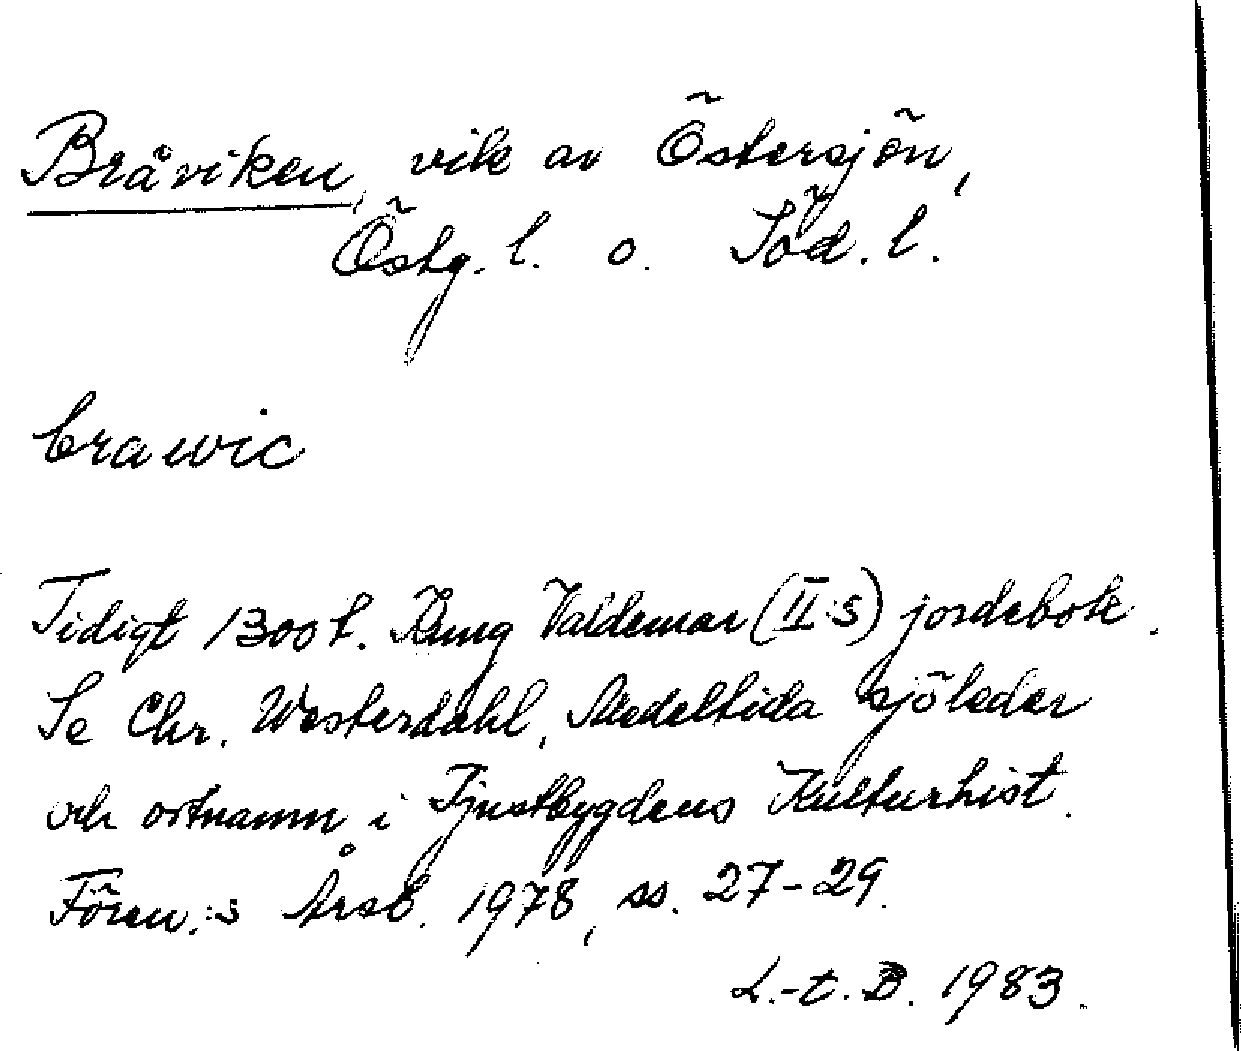 Bråviken, vik av Östersjön,
Östg. l. o. Söd. l.
brawic
Tidigt 1300 t. Kung Valdemar (II:s) jordebok.
Se Chr. Westerdahl, Medeltida sjöleder
och ortnamn i Tjustbygdens Kulturhist.
Fören.:s Årsb. 1978, ss. 27-29.
L.-t. B. 1983.